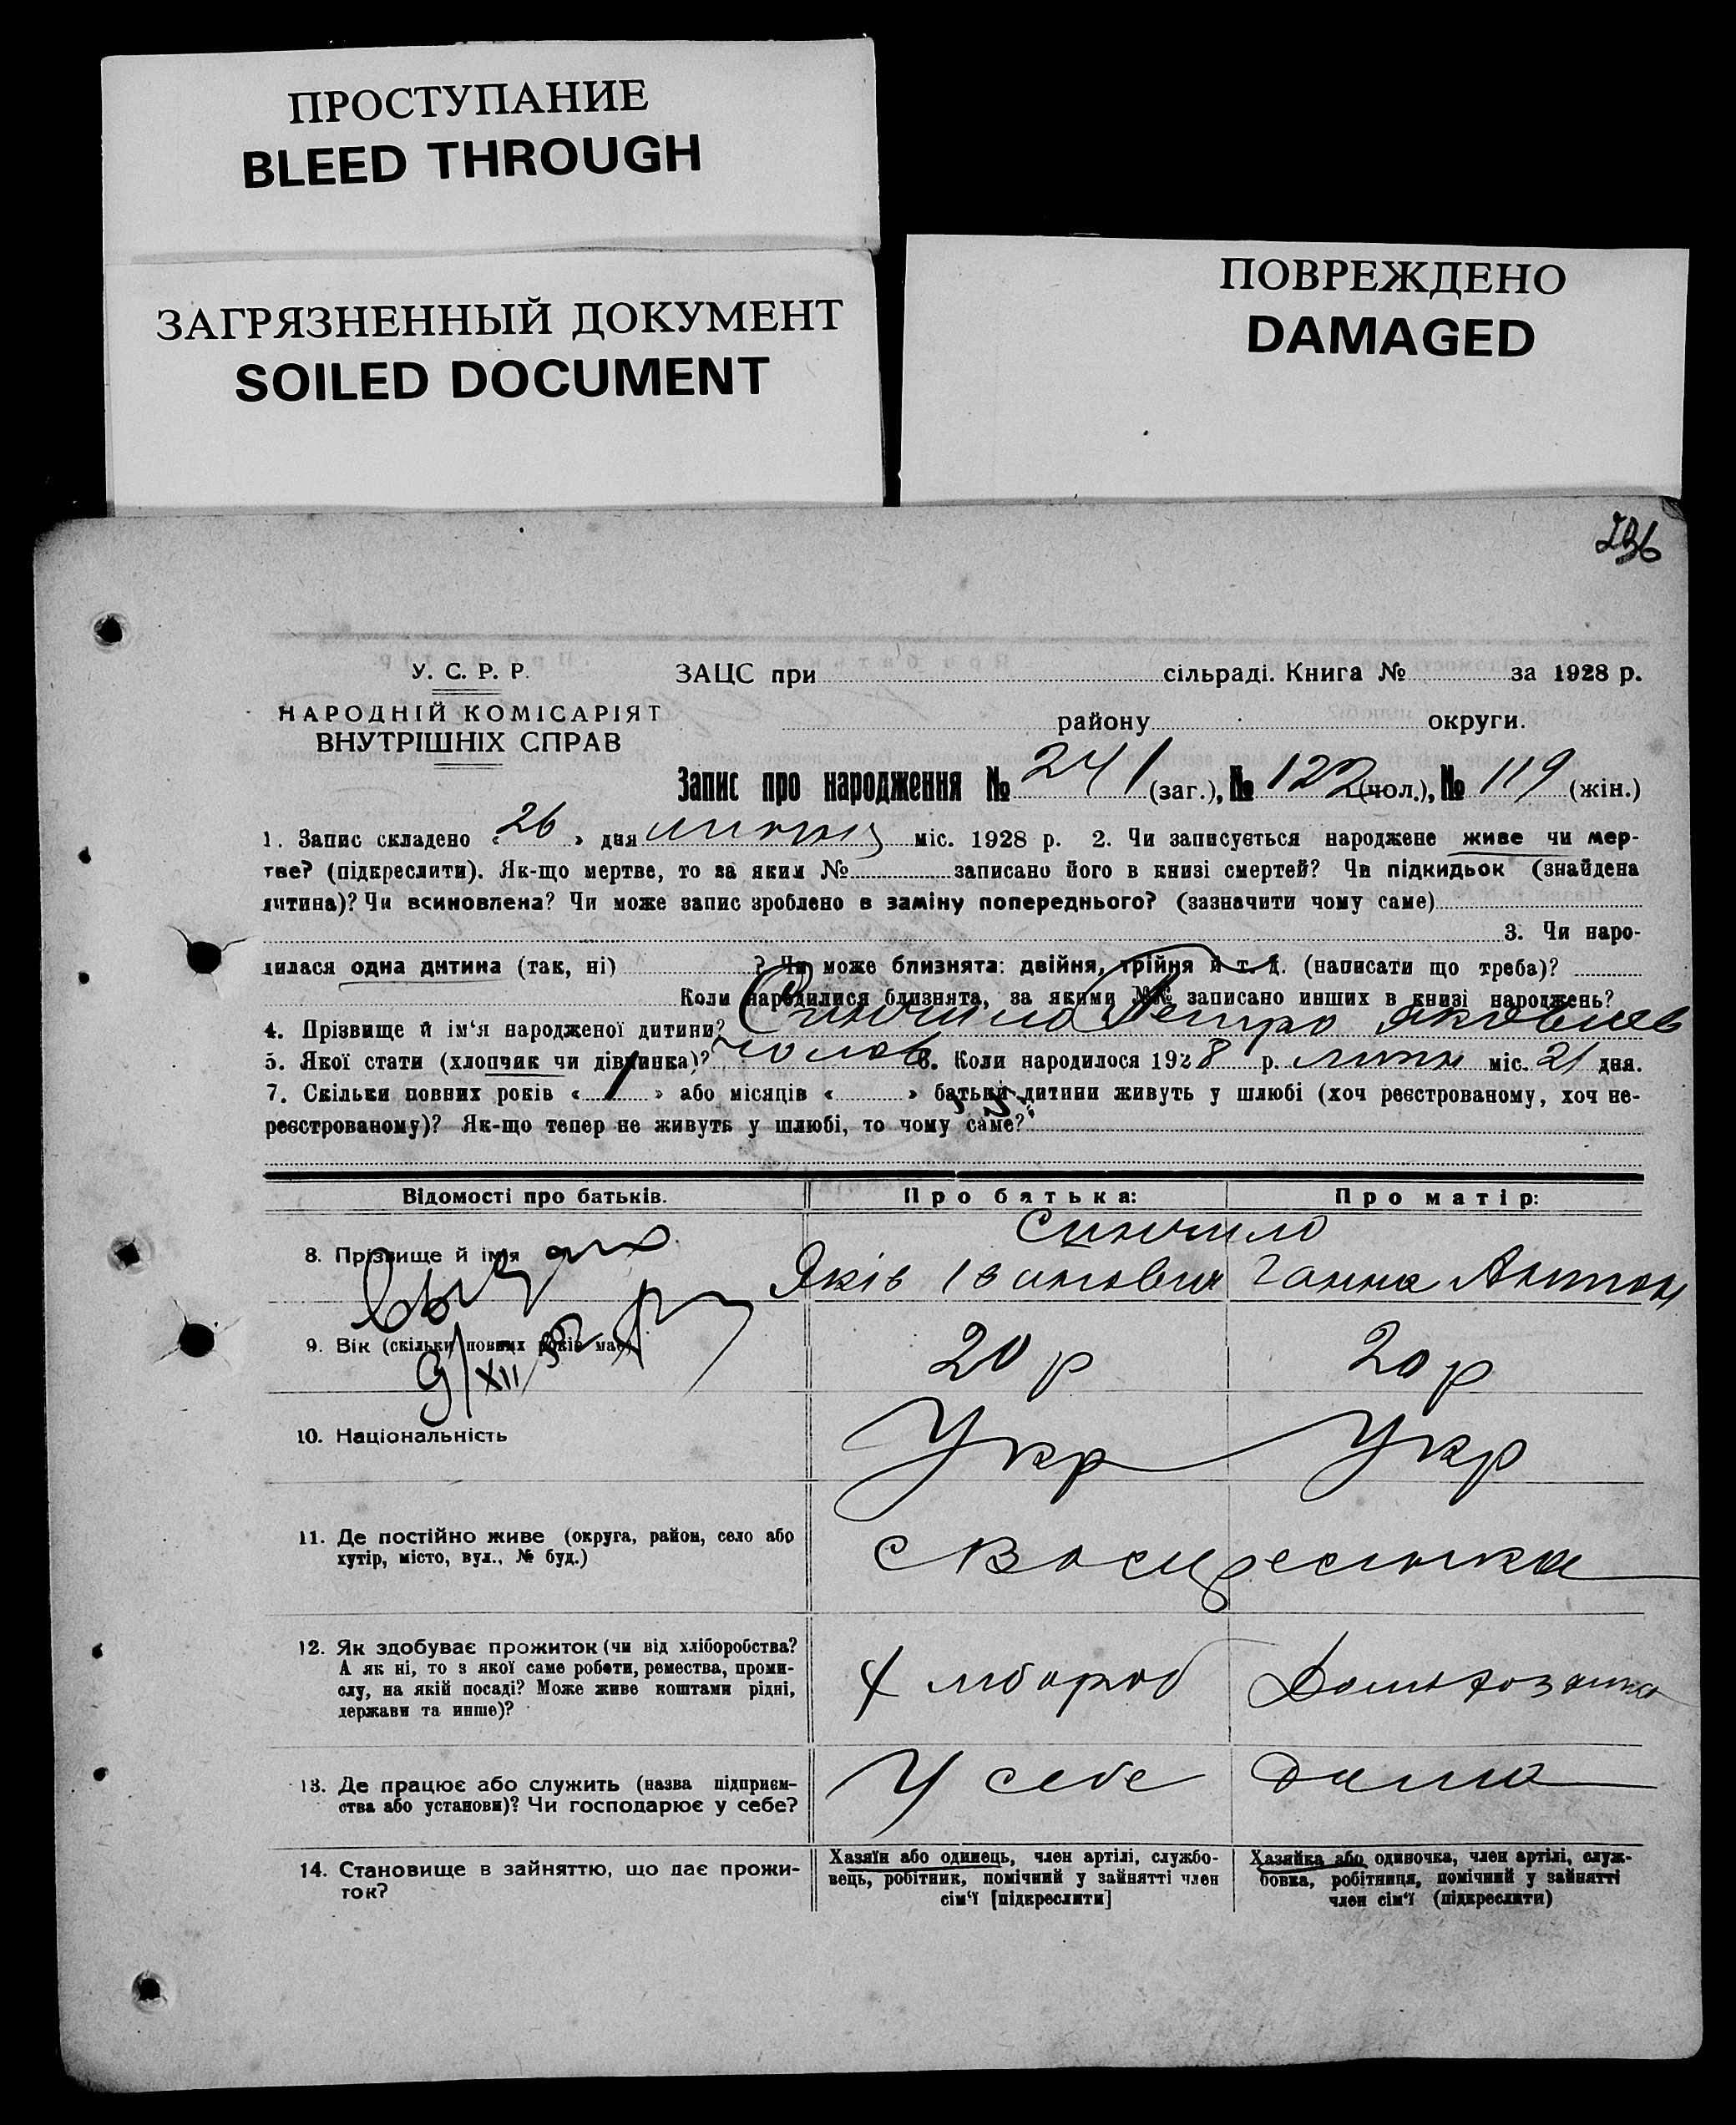 ПРОСТУПАНИЕ
BLEED THROUGH
ЗАГРЯЗНЕННЫЙ ДОКУМЕНТ
SOILED DOCUMENT
ПОВРЕЖДЕНО
DAMAGED
У. С. Р. Р.
НАРОДНІЙ КОМІСАРІЯТ
ВНУТРІШНІХ СПРАВ
ЗАЦС при сільраді. Книга № за 1928 р.
району округи.
Запис про народження № 241 (заг.), № 122 (чол.), № 119 (жін.)
1. Запис складено « 26 » дня липня міс. 1928 р. 2. Чи записується народжене живе чи мер-
тве? (підкреслити). Як-що мертве, то за яким № записано його в книзі смертей? Чи підкидьок (знайдена
дитина)? Чи всиновлена? Чи може запис зроблено в заміну попереднього? (зазначити чому саме)
3. Чи наро-
дилася одна дитина (так, ні) ? Чи може близнята: двійня, трійня й т. д. (написати що треба)?
Коли народилися близнята, за якими №№ записано инших в книзі народжень?
4. Прізвище й ім'я народженої дитини? Синчило Петро Яковлев
5. Якої стати (хлопчик чи дівчинка)? чолов 6. Коли народилося 1928 р. липн міс. 21 дня.
7. Скільки повних років « 1 » або місяців « » батьки дитини живуть у шлюбі (хоч реєстрованому, хоч не-
реєстрованому)? Як-що тепер не живуть у шлюбі, то чому саме?
Відомості про батьків. Про батька: Про матір:
8. Прізвище й ім'я Синчило
Яків Іванович Ганна Антон
9. Вік (скільки повних років має) 20 р 20 р
9/XII
10. Національність Укр Укр
11. Де постійно живе (округа, район, село або
хутір, місто, вул., № буд.)
с Воскресенка
12. Як здобуває прожиток (чи від хліборобства?
А як ні, то з якої саме роботи, ремества, проми-
слу, на якій посаді? Може живе коштами рідні,
держави та инше)?
Хлібороб Домохозяйка
13. Де працює або служить (назва підприєм-
ства або установи)? Чи господарює у себе?
У себе дома
14. Становище в зайняттю, що дає прожи-
ток?
Хазяїн або одинець, член артілі, службо-
вець, робітник, помічний у зайнятті член
сім'ї [підкреслити]
Хазяйка або одиночка, член артілі, служ-
бовка, робітниця, помічний у зайнятті
член сім'ї (підкреслити)